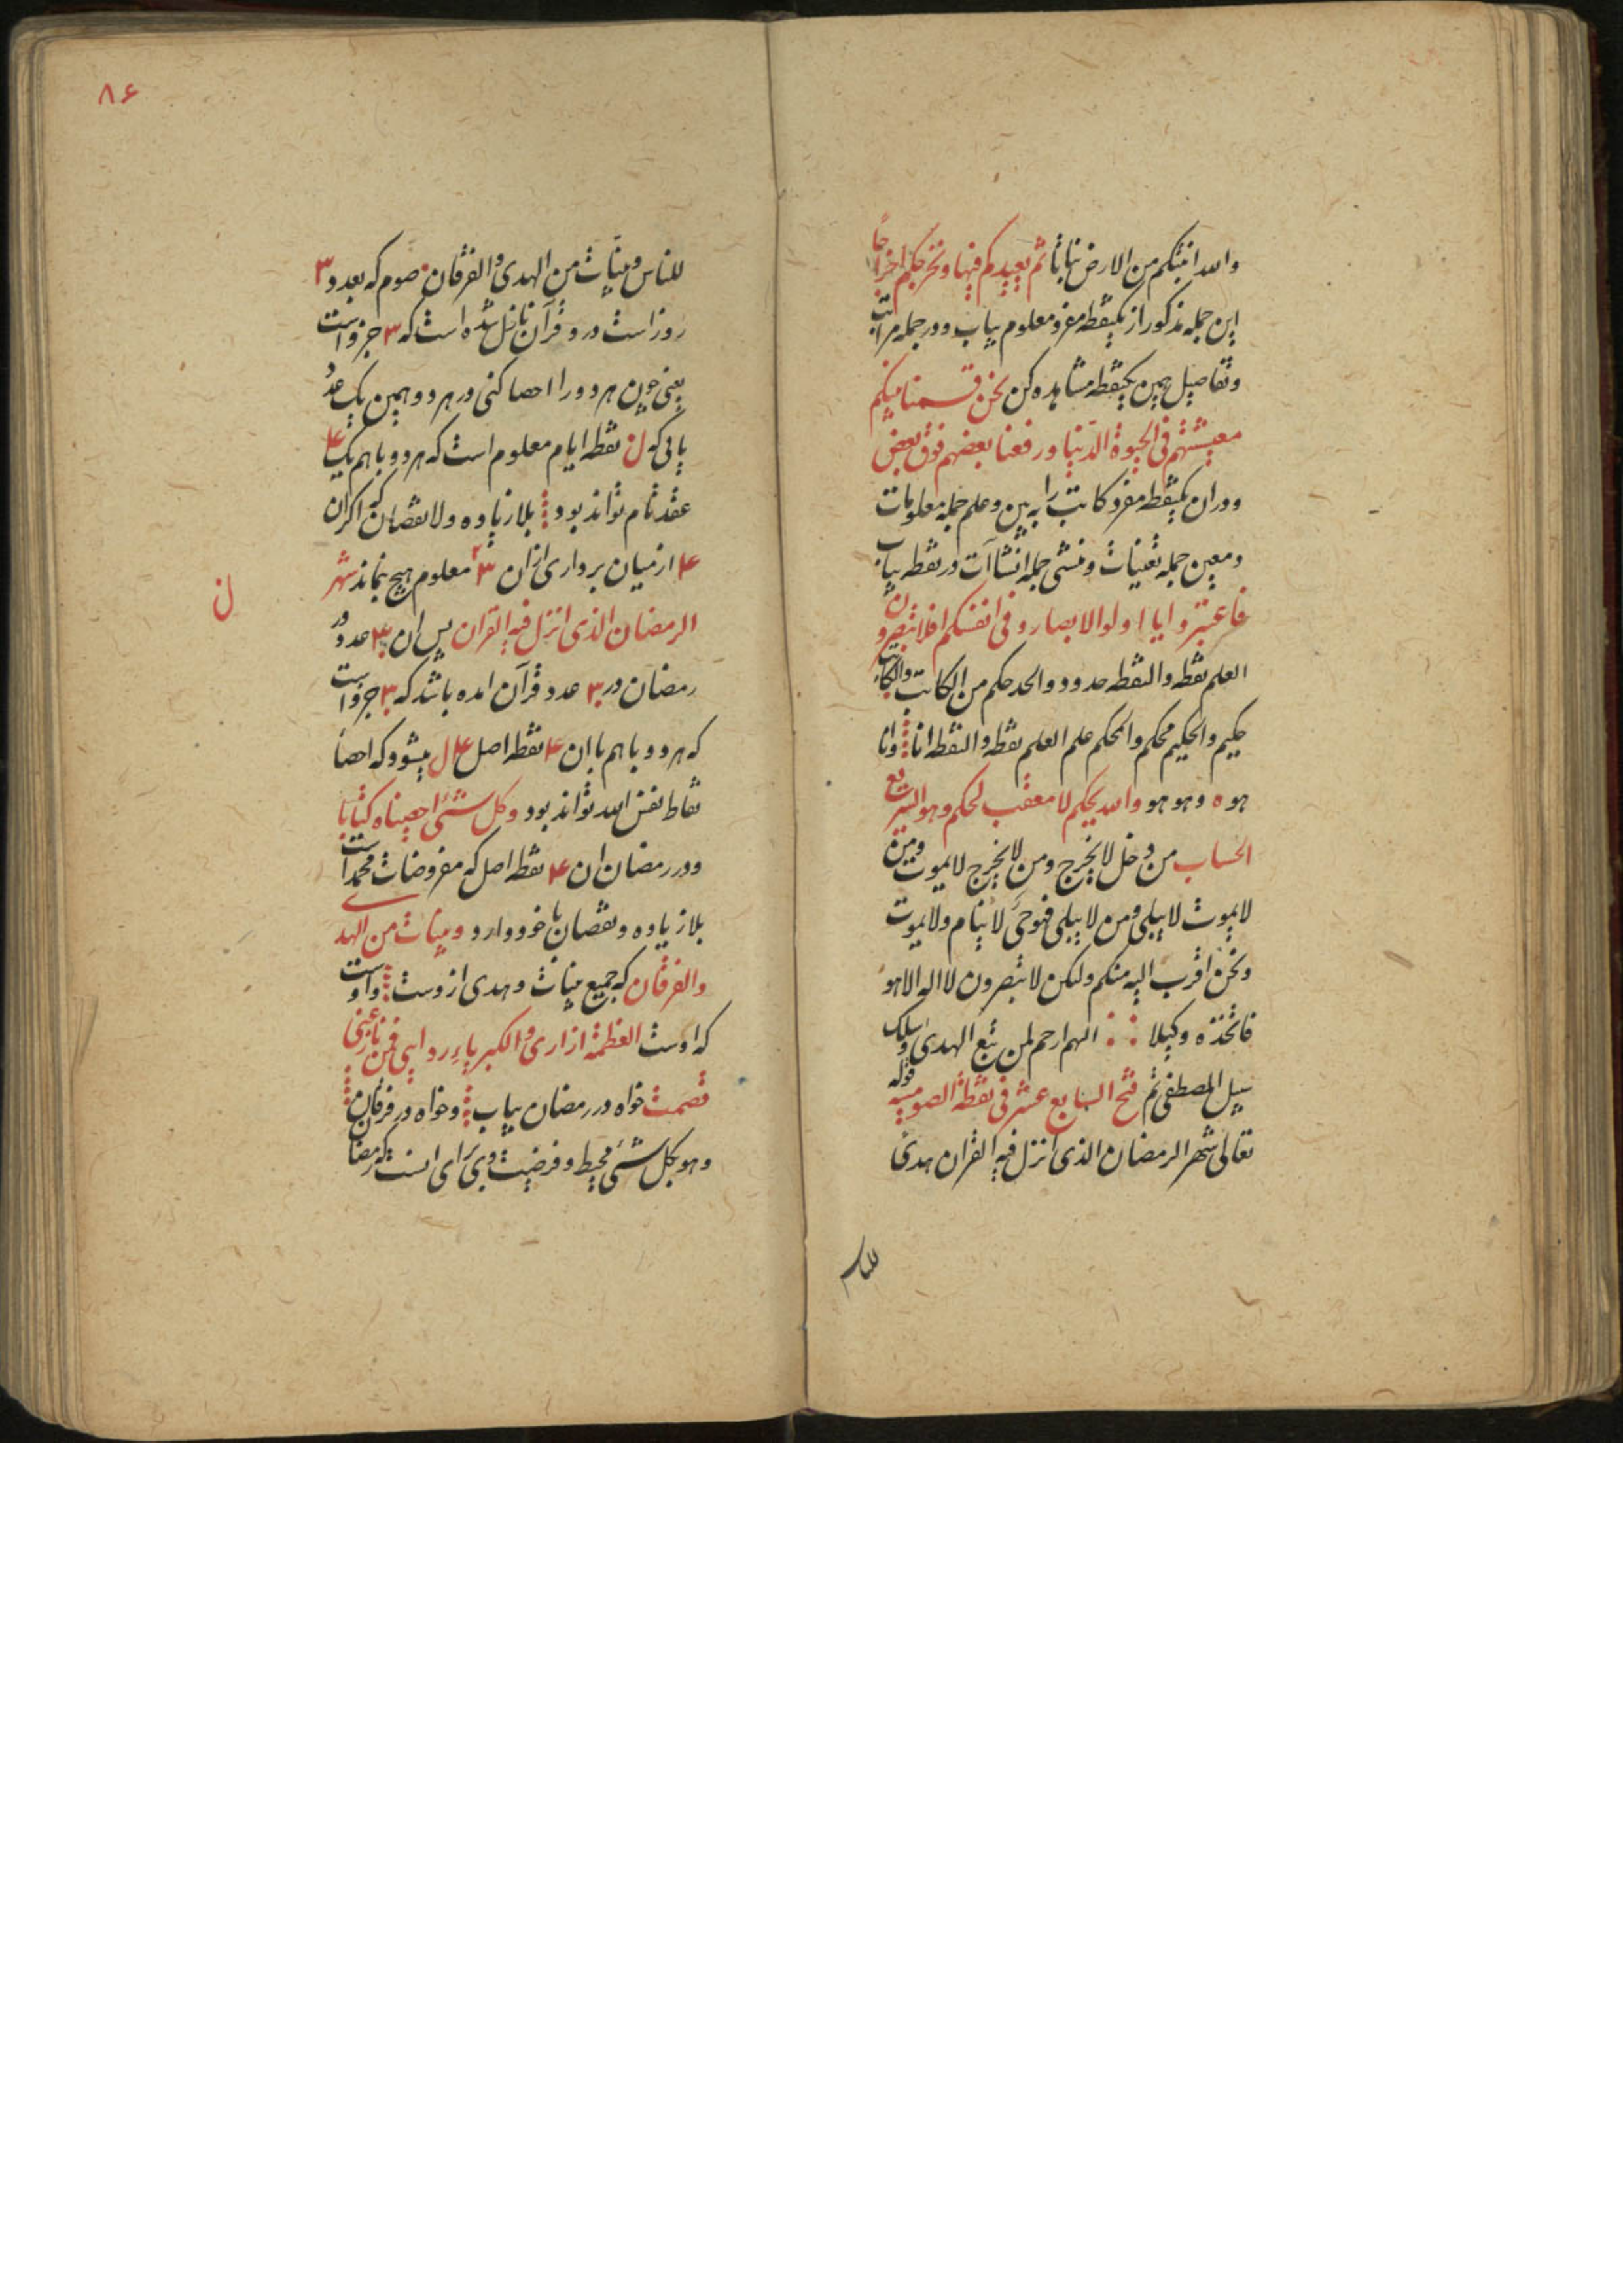 والله انبتکم من الارض نباتا ثم یعیدکم فیها ونخرجکم اخراجا
این جمله مذکور از یکنقطه مفرد معلوم بیاب ودر جمله مراتب
وتفاصیل همین یکنقطه مشاهده کن نحن قسمنا بینکم
معیشتهم فی الحیوة الدنیا ورفعنا بعضهم فوق بعض
ودران یکنقطه مفرد کاتب را به بین وعلم جمله معلومات
ومعین جمله تعینات ومنشی جمله انشاآت در نقطه بیاب
فاعتبروا یا اولوا الابصار وفی انفسکم افلا تبصرون
العلم نقطه والنقطه حدود والحد حکم من الکاتب والکاتب
حکیم والحکیم محکم والمحکم علم العلم نقطه والنقطه انا وانا
هوه وهو هو والله یحکم لا معقب لحکمه وهو السریع
الحساب من دخل لا یخرج ومن لا یخرج لا یموت ومن
لا یموت لا یبلی ومن لا یبلی فهو حی لا ینام ولا یموت
ونحن اقرب الیه منکم ولکن لا تبصرون لا اله الا هو
فاتخذه وکیلا اللهم ارحم لمن تبع الهدی وسلک
سبیل المصطفی ثم فتح السابع عشر فی نقطة الصومیه قوله
تعالی شهر الرمضان الذی انزل فیه القران هدی
للناس
۸۶
للناس وبینات من الهدی والفرقان صوم که بعدد ۳
روز است درو قرآن نازل شده است که ۳ جزو است
یعنی چون هر دو را احصا کنی در هر دو همین یک عدد
یابی که ن نقطه ایام معلوم است که هر دو باهم یک ۴
عقد تام تواند بود بلا زیاده ولا نقصان که اکر ان
۴ از میان برداری ازان ۳ معلوم هیچ نماند شهر
ن
الرمضان الذی انزل فیه القران پس ان ۳ عدد در
رمضان در ۳ عدد قرآن امده باشد که ۳ جزو است
که هر دو باهم با ان ۴ نقطه اصل ۴ ل میشود که احصا
نقاط نفس الله تواند بود وکل شئی احصیناه کتابا
ودر رمضان ان ۴ نقطه اصل که مفروضات محمد است
بلا زیاده ونقصان با خود دارد وبینات من الهدی
والفرقان که جمیع بینات وهدی ازوست واوست
که اوست العظمة ازاری والکبریاء ردایی فمن نازعنی
قصمت خواه در رمضان بیاب وخواه در فرقان
وهو بکل شئی محیط وفرضیت وی برای انست که رمضان